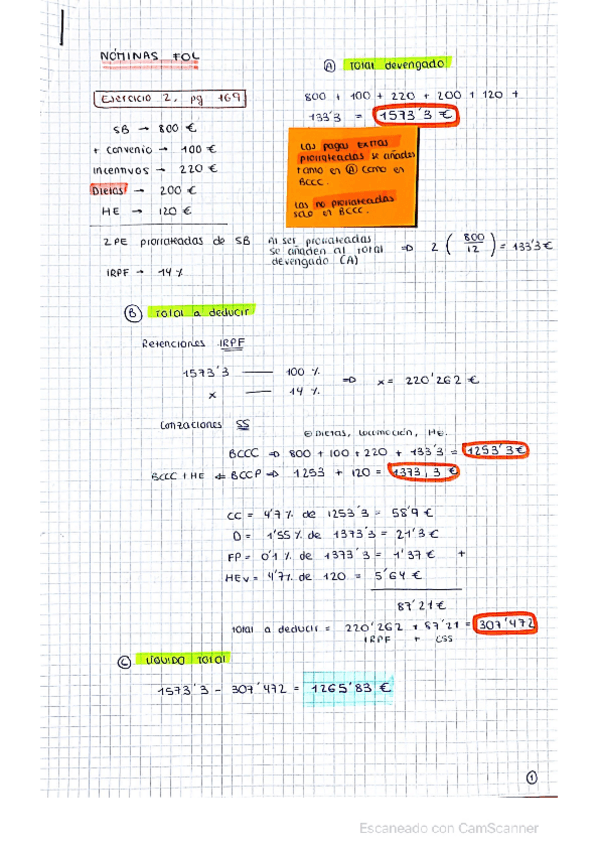 NÓMINAS FOL
Ejercicio 2, pg 169
SB → 800 €
+ convenio → 100 €
incentivos → 220 €
Dietas → 200 €
HE → 120 €
2 PE prorrateadas de SB
IRPF → 14 %
A Total devengado
800 + 100 + 220 + 200 + 120 +
133'3 = 1573'3 €
Las pagas extras
prorrateadas se añaden
tanto en A como en
BCCC.
Las no prorrateadas
solo en BCCC.
Al ser prorrateadas
se añaden al total
devengado (A)
⇒ 2 ( 800 / 12 ) = 133'3 €
B Total a deducir
Retenciones IRPF
1573'3 —— 100 %
x —— 14 %
⇒ x = 220'262 €
Cotizaciones SS
⊖ Dietas, locomoción, HE.
BCCC ⇒ 800 + 100 + 220 + 133'3 = 1253'3 €
BCCC + HE ⇐ BCCP ⇒ 1253 + 120 = 1373,3 €
CC = 4'7 % de 1253'3 = 58'9 €
D = 1'55 % de 1373'3 = 21'3 €
FP = 0'1 % de 1373'3 = 1'37 € +
HEv = 4'7 % de 120 = 5'64 €
87'21 €
Total a deducir = 220'262 + 87'21 = 307'472
IRPF + CSS
C LÍQUIDO TOTAL
1573'3 - 307'472 = 1265'83 €
1
Escaneado con CamScanner